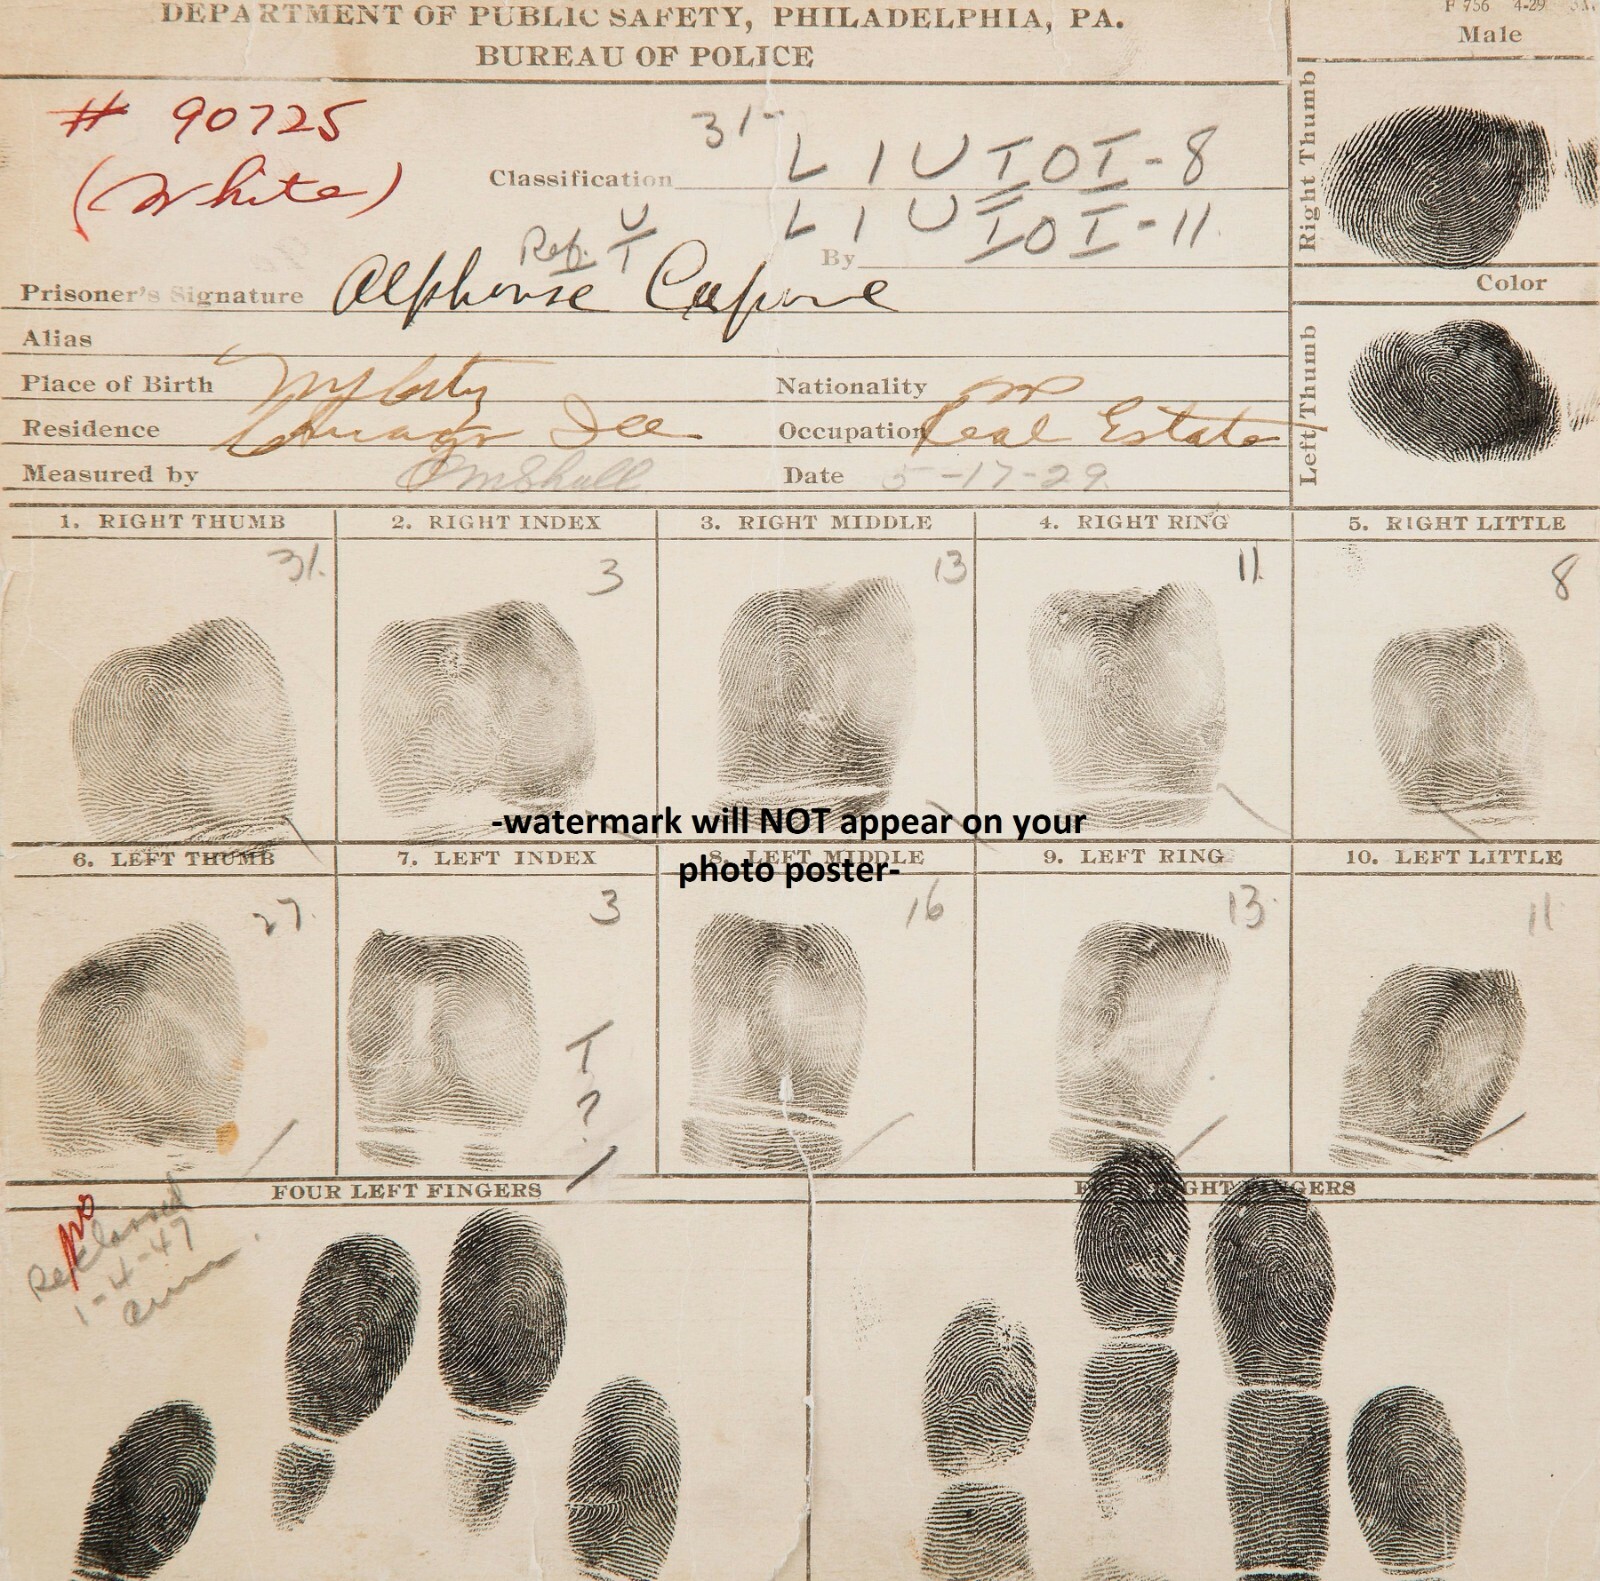 DEPARTMENT OF PUBLIC SAFETY, PHILADELPHIA, PA.
BUREAU OF POLICE
F 756 4-29
Male
# 90725
(White)
31-
Classification L 1 U T O I - 8
L 1 U I O I - 11
Ref. U
T
By
Prisoner's Signature Alphonse Capone
Alias
Place of Birth N.Y. City Nationality
Residence Chicago Ill Occupation Real Estate
Measured by Date 5-17-29.
Right Thumb
Color
Left Thumb
1. RIGHT THUMB 2. RIGHT INDEX 3. RIGHT MIDDLE 4. RIGHT RING 5. RIGHT LITTLE
31. 3 13 11. 8
-watermark will NOT appear on your
photo poster-
6. LEFT THUMB 7. LEFT INDEX 8. LEFT MIDDLE 9. LEFT RING 10. LEFT LITTLE
27. 3 16 13. 11
T
?
FOUR LEFT FINGERS FOUR RIGHT FINGERS
no
1-4-47